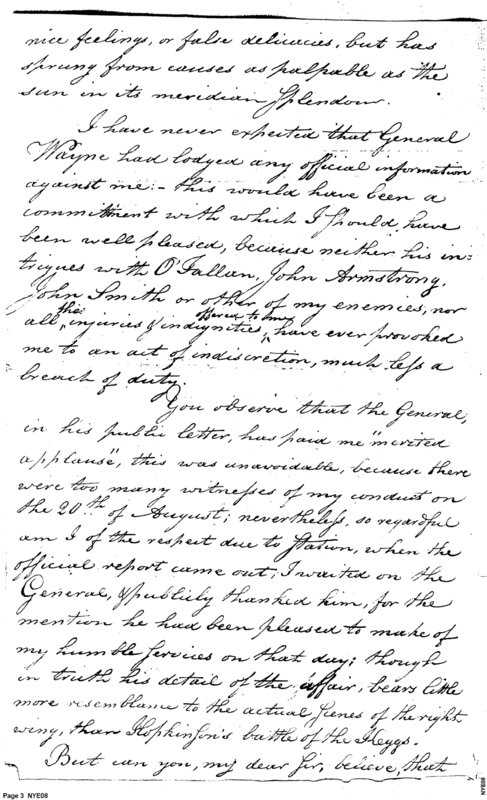 nice feelings, or false delicacies, but has
sprung from causes as palpable as the
sun in its meridian Splendour.
I have never expected that General
Wayne had lodged any official information
against me:- this would have been a
commitment with which I Should have
been well pleased, because neither his in=
trigues with O'Fallan, John Armstrong,
John Smith or other of my enemies, nor
the offered to me
all injuries & indignities, have ever provoked
me to an act of indiscretion, much less a
breach of duty.
You observe that the General,
in his public letter, has paid me "merited
applause", this was unavoidable, because there
were too many witnesses of my conduct on
the 20th of August; nevertheless, so regardful
am I of the respect due to Station, when the
official report came out, I waited on the
General, & publicly thanked him, for the
mention he had been pleased to make of
my humble Services on that day; though
in truth his detail of the affair, bears little
more resemblance to the actual Scenes of the right
wing, than Hopkinson's battle of the Keggs.
But can you, my dear Sir, believe, that
Page 3 NYE08
NYE08